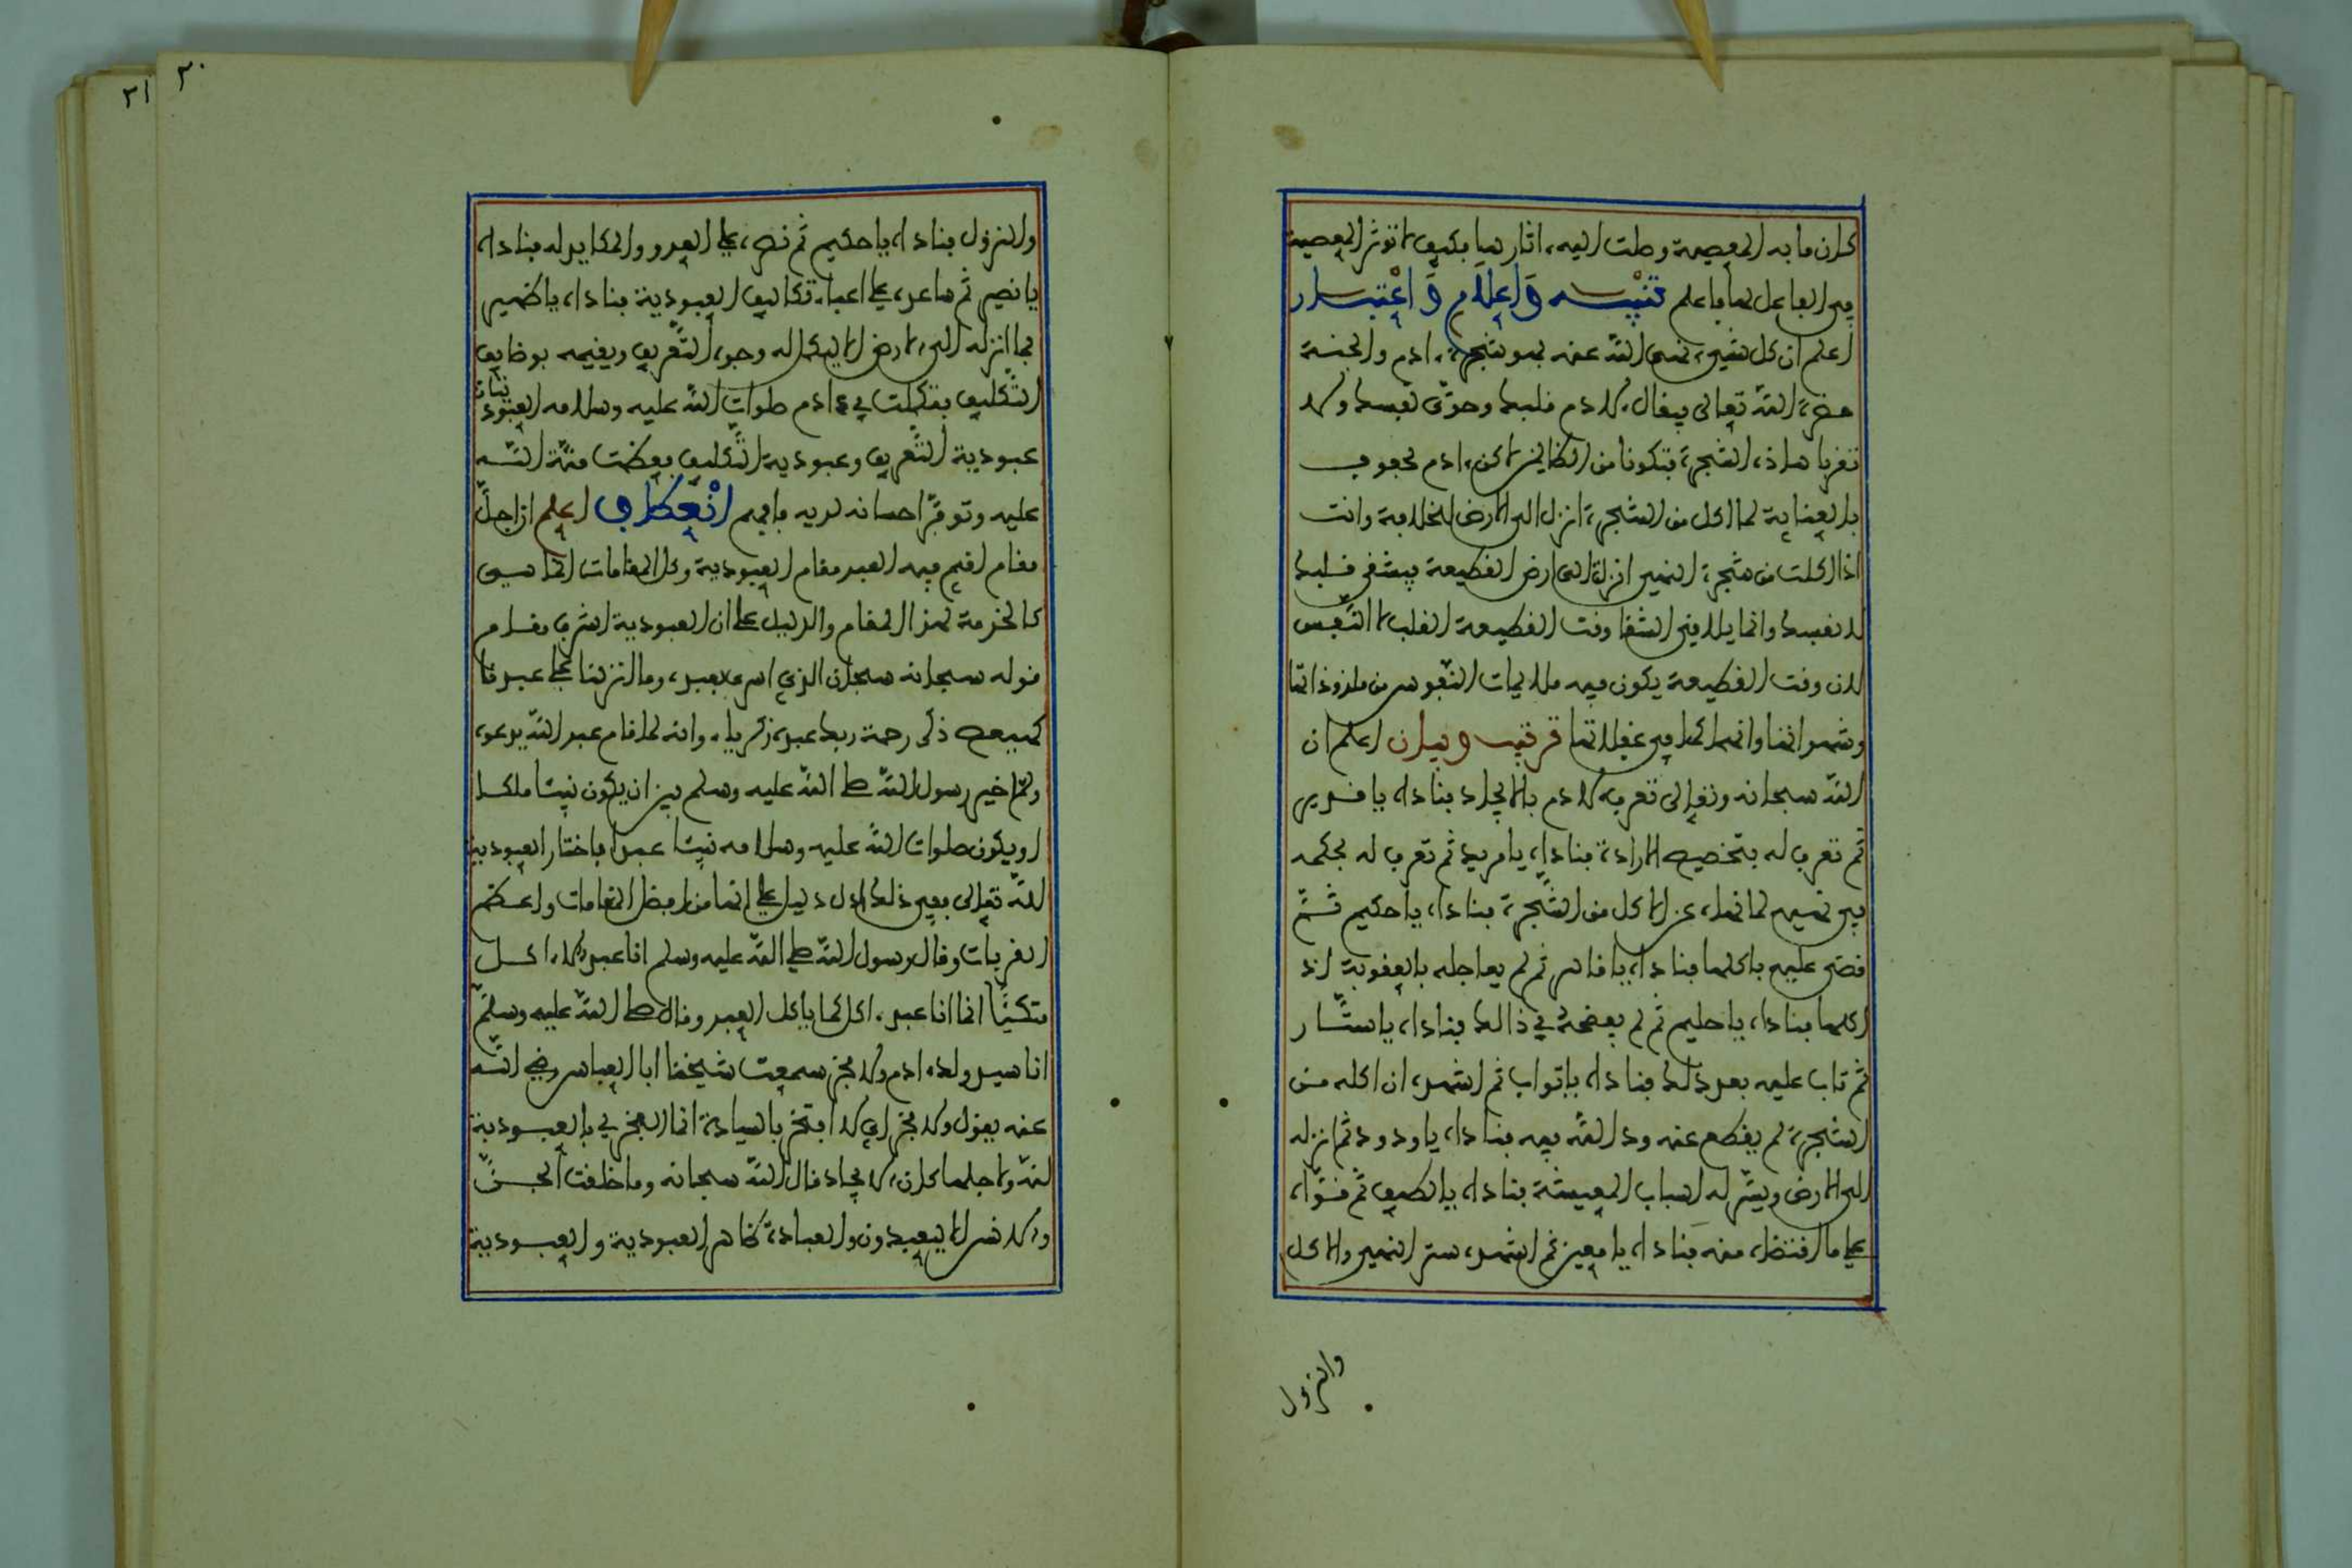 كان ما به المعصية وصلت اليه اثار بها فكيف لا تؤثر المعصية
في الفاعل لها فاعلم تنبيه واعلام واعتبار
اعلم ان كل شيء نهى الله عنه فهو شجرة ادم والجنة
حضرة الله تعالى فيقال لادم قلبك وحوى نفسك ولا
تقربا هذه الشجرة فتكونا من الظالمين لاكن ادم محفوف
بالعناية لما اكل من الشجرة انزل الى الارض للخلافة وانت
اذا اكلت من شجرة النهي انزلت الى ارض القطيعة فيشقى قلبك
لا نفسك وانما يلاقي الشقا وقت القطيعة القلب لا النفس
لان وقت القطيعة يكون فيه ملايمات النفوس من ملذوذاتها
وشهواتها وانهماكها في غفلاتها ترتيب وبيان اعلم ان
الله سبحانه وتعالى تعرف لادم بالايجاد فناداه يا قدير
ثم تعرف له بتخصيص الارادة فناداه يا مريد ثم تعرف له بحكمه
في نهيه لما نهاه عن الاكل من الشجرة فناداه يا حكيم ثم
قضى عليه باكلها فناداه يا قاهر ثم لم يعاجله بالعقوبة اذ
اكلها فناداه يا حليم ثم لم يفضحه في ذالك فناداه يا ستار
ثم تاب عليه بعد ذلك فناداه يا تواب ثم اشهده ان اكله من
الشجرة لم يقطع عنه ود الله فيه فناداه يا ودود ثم انزله
الى الارض ويسر له اسباب المعيشة فناداه يا لطيف ثم قواه
على ما اقتضاه منه فناداه يا معين ثم اشهده سر النهي والاكل
والنزول
٣٠
٣١
والنزول فناداه يا حكيم ثم نصره على العدو والمكايد له فناداه
يا نصير ثم ساعده على اعباء تكاليف العبودية فناداه يا ظهير
فما انزله الى الارض الا ليكمل له وجوه التعريف ويقيمه بوظايف
التكليف فتكملت في ادم صلوات الله عليه وسلامه العبوديتان
عبودية التعريف وعبودية التكليف فعظمت منة الله
عليه وتوفر احسانه لديه فافهم انعطاف اعلم ان اجل
مقام اقيم فيه العبد مقام العبودية وكل المقامات انما هي
كالخدمة لهذا المقام والدليل على ان العبودية اشرف مقام
قوله سبحانه سبحان الذي اسرى بعبده وما انزلنا على عبدنا
كهيعص ذكر رحمة ربك عبده زكرياء وانه لما قام عبد الله يدعوه
ولما خير رسول الله صلى الله عليه وسلم بين ان يكون نبيا ملكا
او يكون صلوات الله عليه وسلامه نبيا عبدا فاختار العبودية
لله تعالى ففي ذلك ادل دليل على انها من افضل المقامات واعظم
القربات وقال رسول الله صلى الله عليه وسلم انا عبد لا اكل
متكيا انما انا عبد اكل كما ياكل العبد وقال صلى الله عليه وسلم
انا سيد ولد ادم ولا فخر سمعت شيخنا ابا العباس رضي الله
عنه يقول ولا فخر اي لا افتخر بالسيادة انما الفخر لي بالعبودية
لله ولاجلها كان الايجاد قال الله سبحانه وما خلقت الجن
والانس الا ليعبدون والعبادة ظاهر العبودية والعبودية